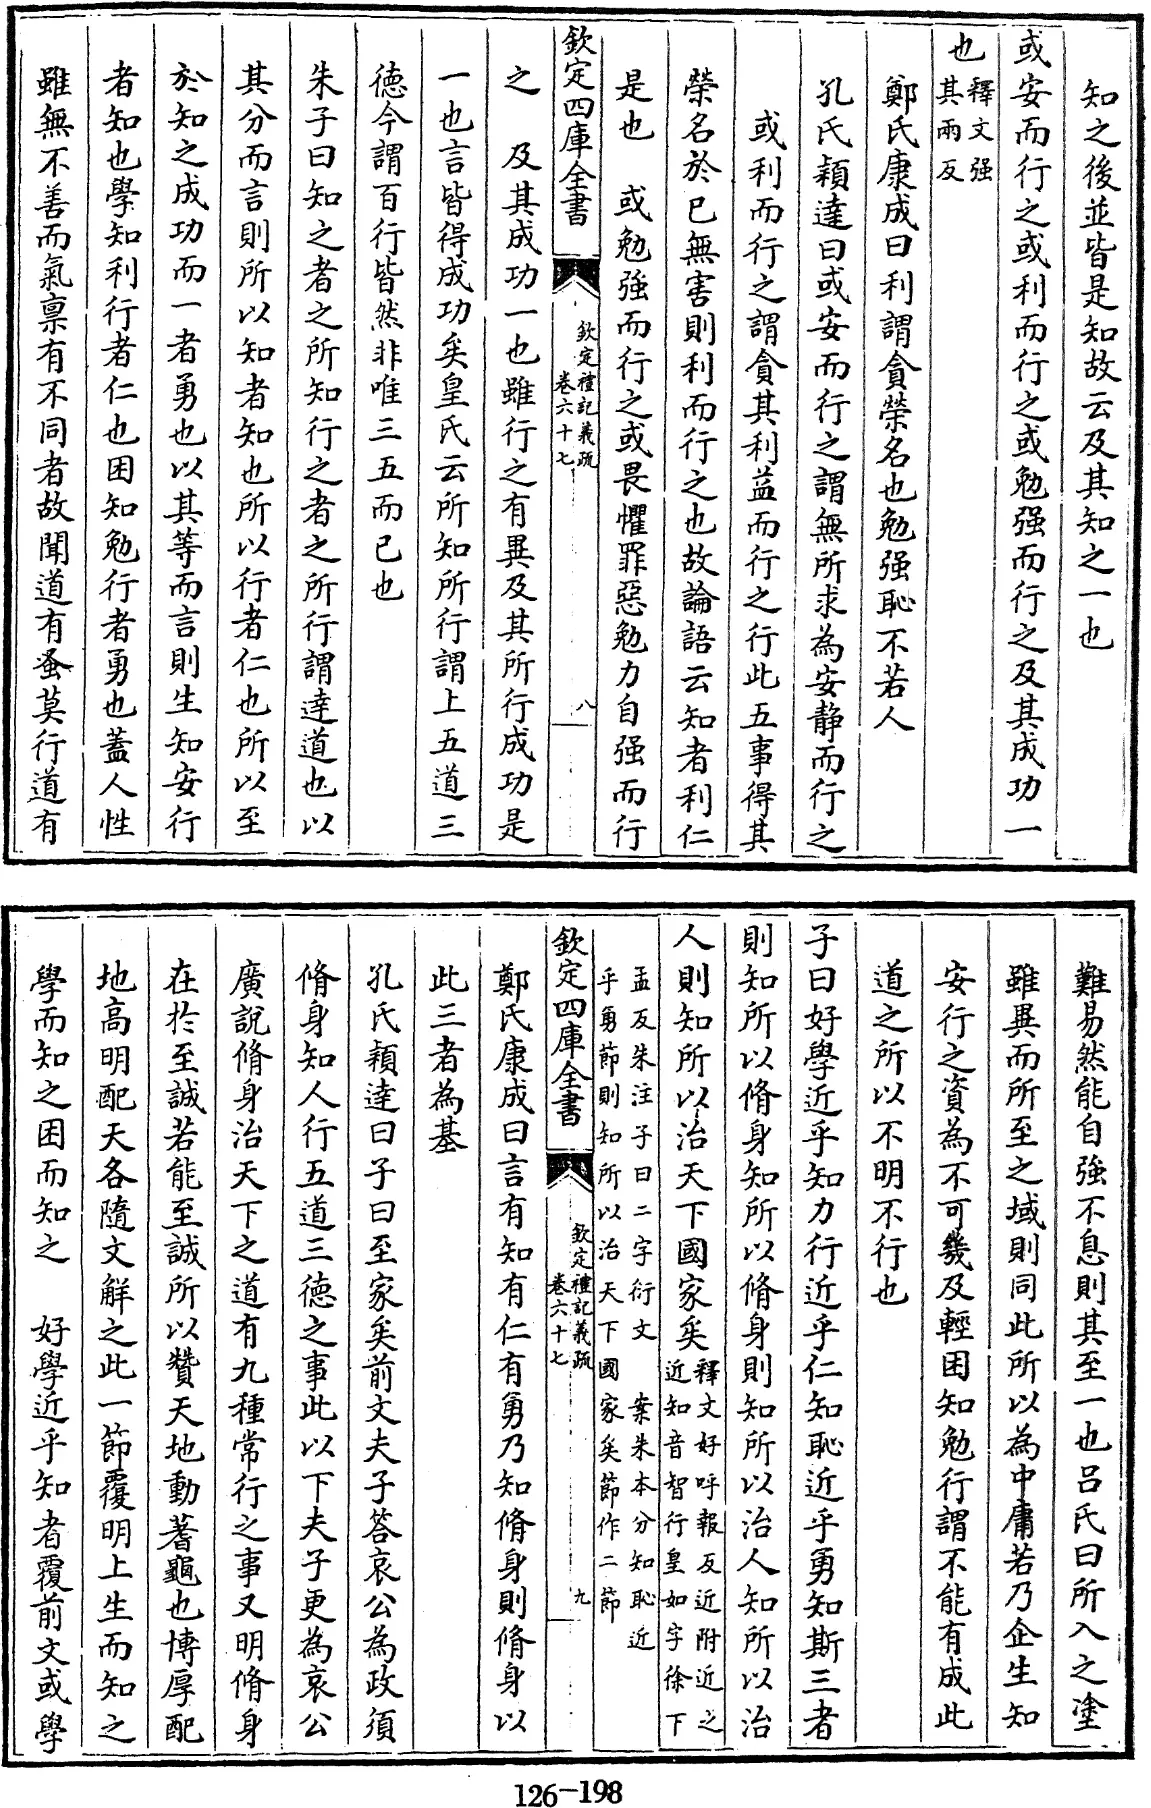 知之後並皆是知故云及其知之一也
或安而行之或利而行之或勉强而行之及其成功一
也釋文强
其兩反
鄭氏康成曰利謂貪榮名也勉强恥不若人
孔氏穎達曰或安而行之謂無所求為安静而行之
或利而行之謂貪其利益而行之行此五事得其
榮名於已無害則利而行之也故論語云知者利仁
是也　或勉强而行之或畏懼罪惡勉力自强而行
欽定四庫全書
欽定禮記義疏
卷六十七
八
之　及其成功一也雖行之有異及其所行成功是
一也言皆得成功矣皇氏云所知所行謂上五道三
德今謂百行皆然非唯三五而已也
朱子曰知之者之所知行之者之所行謂逹道也以
其分而言則所以知者知也所以行者仁也所以至
於知之成功而一者勇也以其等而言則生知安行
者知也學知利行者仁也困知勉行者勇也蓋人性
雖無不善而氣稟有不同者故聞道有蚤莫行道有
難易然能自強不息則其至一也吕氏曰所入之塗
雖異而所至之域則同此所以為中庸若乃企生知
安行之資為不可幾及輕困知勉行謂不能有成此
道之所以不明不行也
子曰好學近乎知力行近乎仁知恥近乎勇知斯三者
則知所以脩身知所以脩身則知所以治人知所以治
人則知所以治天下國家矣釋文好呼報反近附近之
近知音智行皇如字徐下
孟反朱注子曰二字衍文　案朱本分知恥近
乎勇節則知所以治天下國家矣節作二節
欽定四庫全書
欽定禮記義疏
卷六十七
九
鄭氏康成曰言有知有仁有勇乃知脩身則脩身以
此三者為基
孔氏穎逹曰子曰至家矣前文夫子答哀公為政須
脩身知人行五道三德之事此以下夫子更為哀公
廣說脩身治天下之道有九種常行之事又明脩身
在於至誠若能至誠所以贊天地動蓍龜也博厚配
地高明配天各隨文解之此一節覆明上生而知之
學而知之困而知之　好學近乎知者覆前文或學
126-198